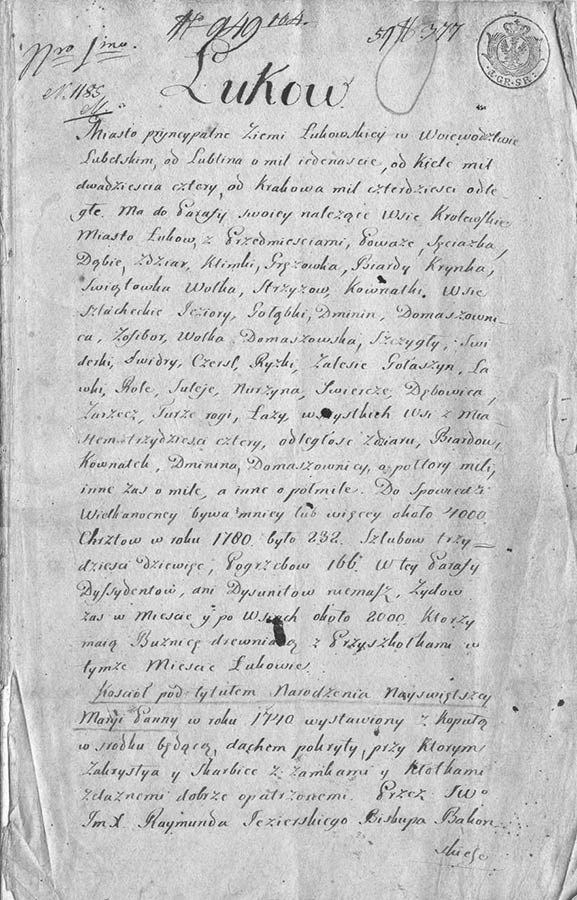 № 949
59 № 377
Nro 1mo
N. 1185
3. GR. SR.
Łukow
Miasto pryncypalne Ziemi Łukowskiey w Woiewodztwie
Lubelskim, od Lublina o mil iedenascie, od Kielc mil
dwadziescia cztery, od Krakowa mil czterdziesci odle
głe. Ma do Parafy swoiey nalezące Wsie Krolewskie
Miasto Łukow, z Przedmiesciami, Poważe, Sięciazka,
Dąbie, Zdziar, Klimki, Gręzowka, Biardy Krynka,
Swiątłowka Wolka, Strzyzow, Kownatki. Wsie
Szlacheckie Jeziory, Gołąbki, Dminin, Domaszowni-
ca, Zofibor, Wolka Domaszowska, Szczygły, Swi
derki, Swidry, Czersl, Ryzki, Zalesie Gołaszyn, Ła
wki, Role, Suleje, Nurzyna, Swiercze, Dębowica,
Zarzecz, Turze rogi, Łazy, wszystkich Wsi z Mia
stem trzydziesci cztery, odległosc Zdziaru, Biardow,
Kownatek, Dminina, Domaszownicy, o połtory mili,
inne zas o mile, a inne o połmile. Do Spowiedzi
Wielkanocney bywa mniey lub więcey około 4000
Chrztow w roku 1780 było 232. Szlubow trzy-
dziesci dziewięc, Pogrzebow 166. W tey Parafy
Dyssydentow, ani Dysunitow niemasz, Zydow
zas w Miescie y po Wsiach około 2000 Ktorzy
maią Buznicę drewnianą z Przyszkołkami w
tymze Miescie Łukowie.
Kosciół pod tytułem Narodzenia Nayswiętszey
Maryi Panny w roku 1710 wystawiony z Kopułą
w srodku będącą, dachem pokryty, przy Ktorym
Zakrystya y Skarbiec z zamkami y Kłotkami
zelaznemi dobrze opatrzonemi. Przez JW°
Jm X. Raymunda Jezierskiego Biskupa Bakow
skiego